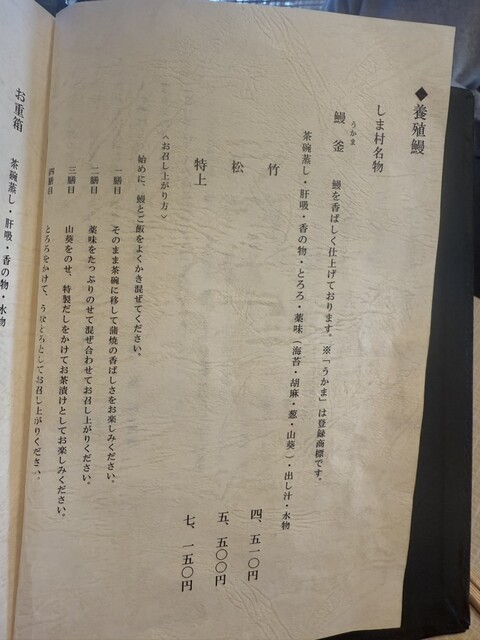 ◆養殖鰻
しま村名物
うかま
鰻釜　鰻を香ばしく仕上げております。※「うかま」は登録商標です。
茶碗蒸し・肝吸・香の物・とろろ・薬味(海苔・胡麻・葱・山葵)・出し汁・水物
竹　四、五一〇円
松　五、五〇〇円
特上　七、一五〇円
〈お召し上がり方〉
始めに、鰻とご飯をよくかき混ぜてください。
一膳目　そのまま茶碗に移して蒲焼の香ばしさをお楽しみください。
二膳目　薬味をたっぷりのせて混ぜ合わせてお召し上がりください。
三膳目　山葵をのせ、特製だしをかけてお茶漬けとしてお楽しみください。
四膳目　とろろをかけて、うなとろとしてお召し上がりください。
お重箱　茶碗蒸し・肝吸・香の物・水物